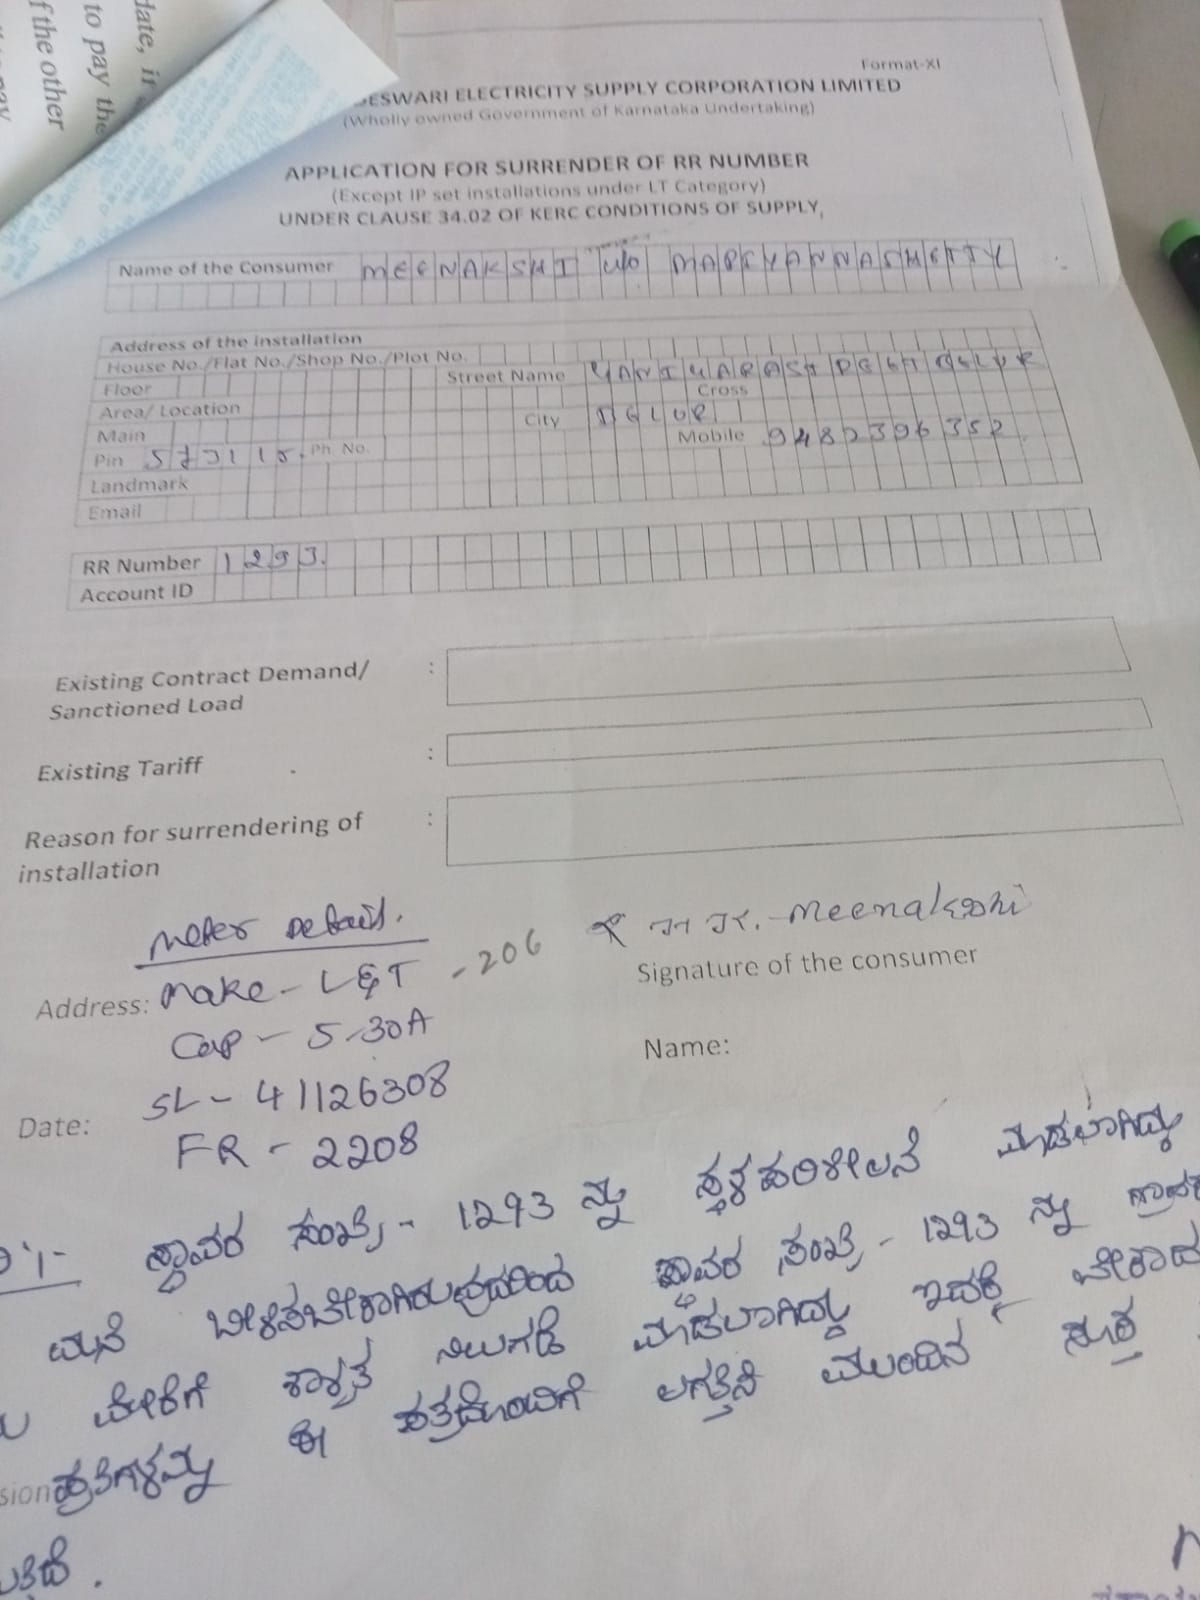 date, if
to pay the
f the other
Format-XI
ESWARI ELECTRICITY SUPPLY CORPORATION LIMITED
(Wholly owned Government of Karnataka Undertaking)
APPLICATION FOR SURRENDER OF RR NUMBER
(Except IP set installations under LT Category)
UNDER CLAUSE 34.02 OF KERC CONDITIONS OF SUPPLY,
Name of the Consumer MEENAKSHI W/O
Address of the installation
House No./Flat No./Shop No./Plot No.
Floor Street Name
Area/ Location Cross
Main City
Pin Ph. No. Mobile 9482396352
Landmark
Email
RR Number 1293.
Account ID
Existing Contract Demand/ :
Sanctioned Load
Existing Tariff :
Reason for surrendering of :
installation
Meter Details.
Meenakshi
Signature of the consumer
Address: Make - L&T - 206
Cap - 5-30A
Name:
SL - 41126308
Date:
FR - 2208
ಸ್ಥಾವರ ಸಂಖ್ಯೆ - 1293 ನ್ನು ಸ್ಥಳಪರಿಶೀಲನೆ ಮಾಡಲಾಗಿದ್ದು
ಮನೆ ಬೀಳಿಸಬೇಕಾಗಿರುವುದರಿಂದ ಸ್ಥಾವರ ಸಂಖ್ಯೆ - 1293 ನ್ನು
ಮೇರೆಗೆ ಶಾಶ್ವತ ನಿಲುಗಡೆ ಮಾಡಲಾಗಿದ್ದು ಇದಕ್ಕೆ ಬೇಕಾದ
sion ಪ್ರತಿಗಳನ್ನು ಈ ಪತ್ರದೊಂದಿಗೆ ಲಗತ್ತಿಸಿ ಮುಂದಿನ